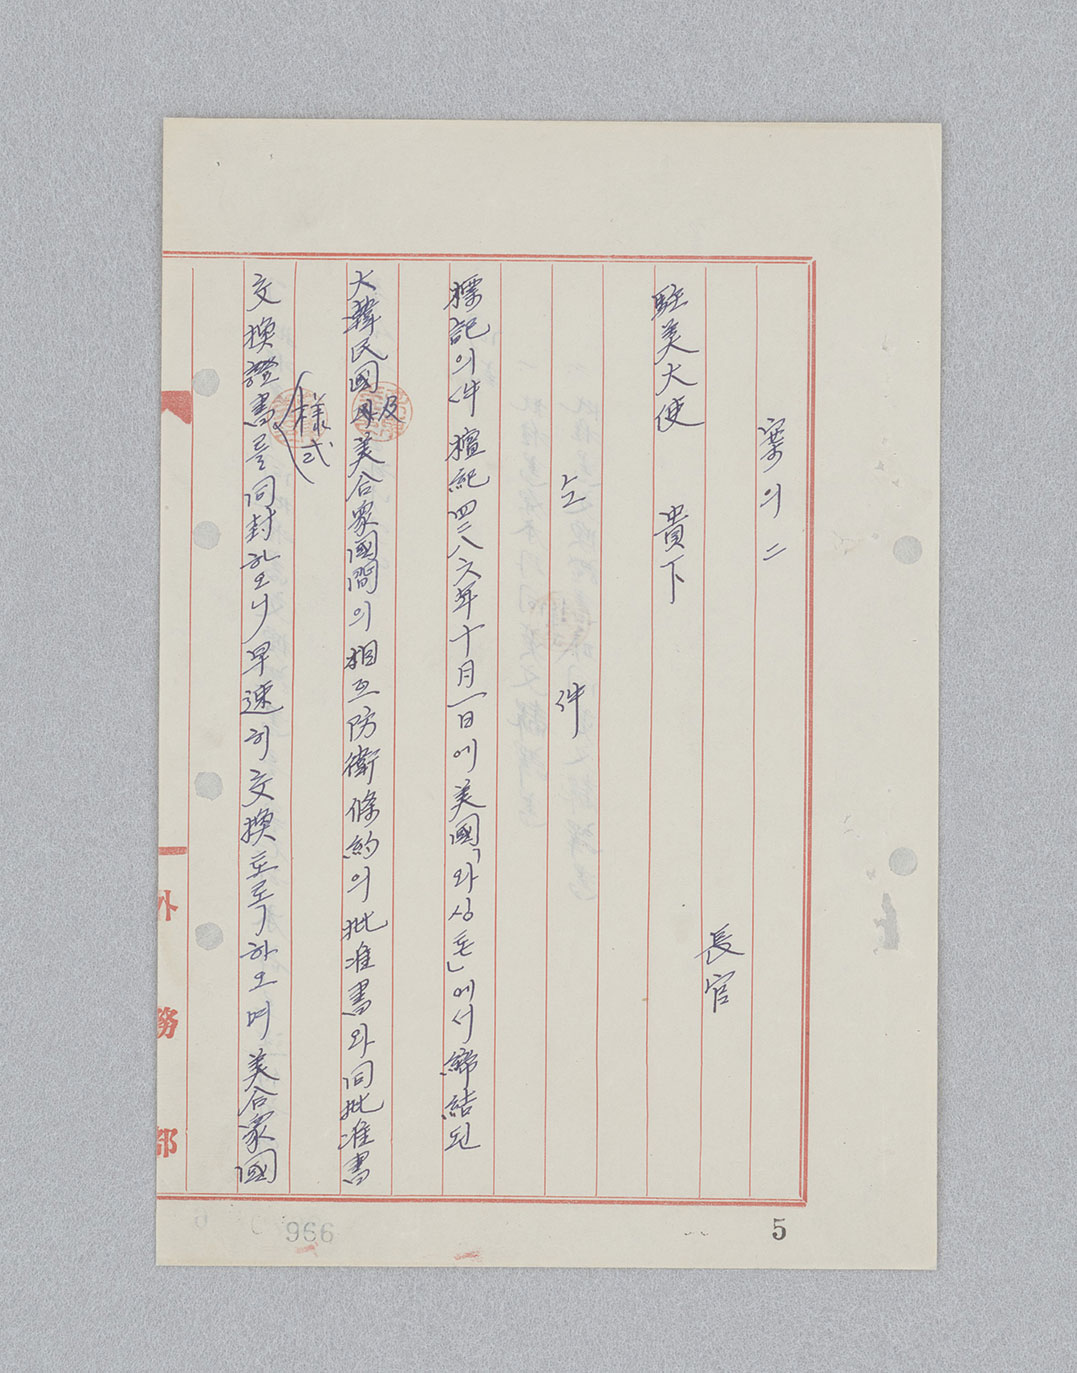 案의 二
長官
駐美大使 貴下
仝 件
標記의 件 檀紀 四二八六年 十月 一日에 美國「와싱톤」에서 締結된
大韓民國及美合衆國間의 相互防衛條約의 批准書와 同批准書
(樣式)
交換證書를 同封하오니 早速히 交換토록 하오며 美合衆國
外務部
996
5